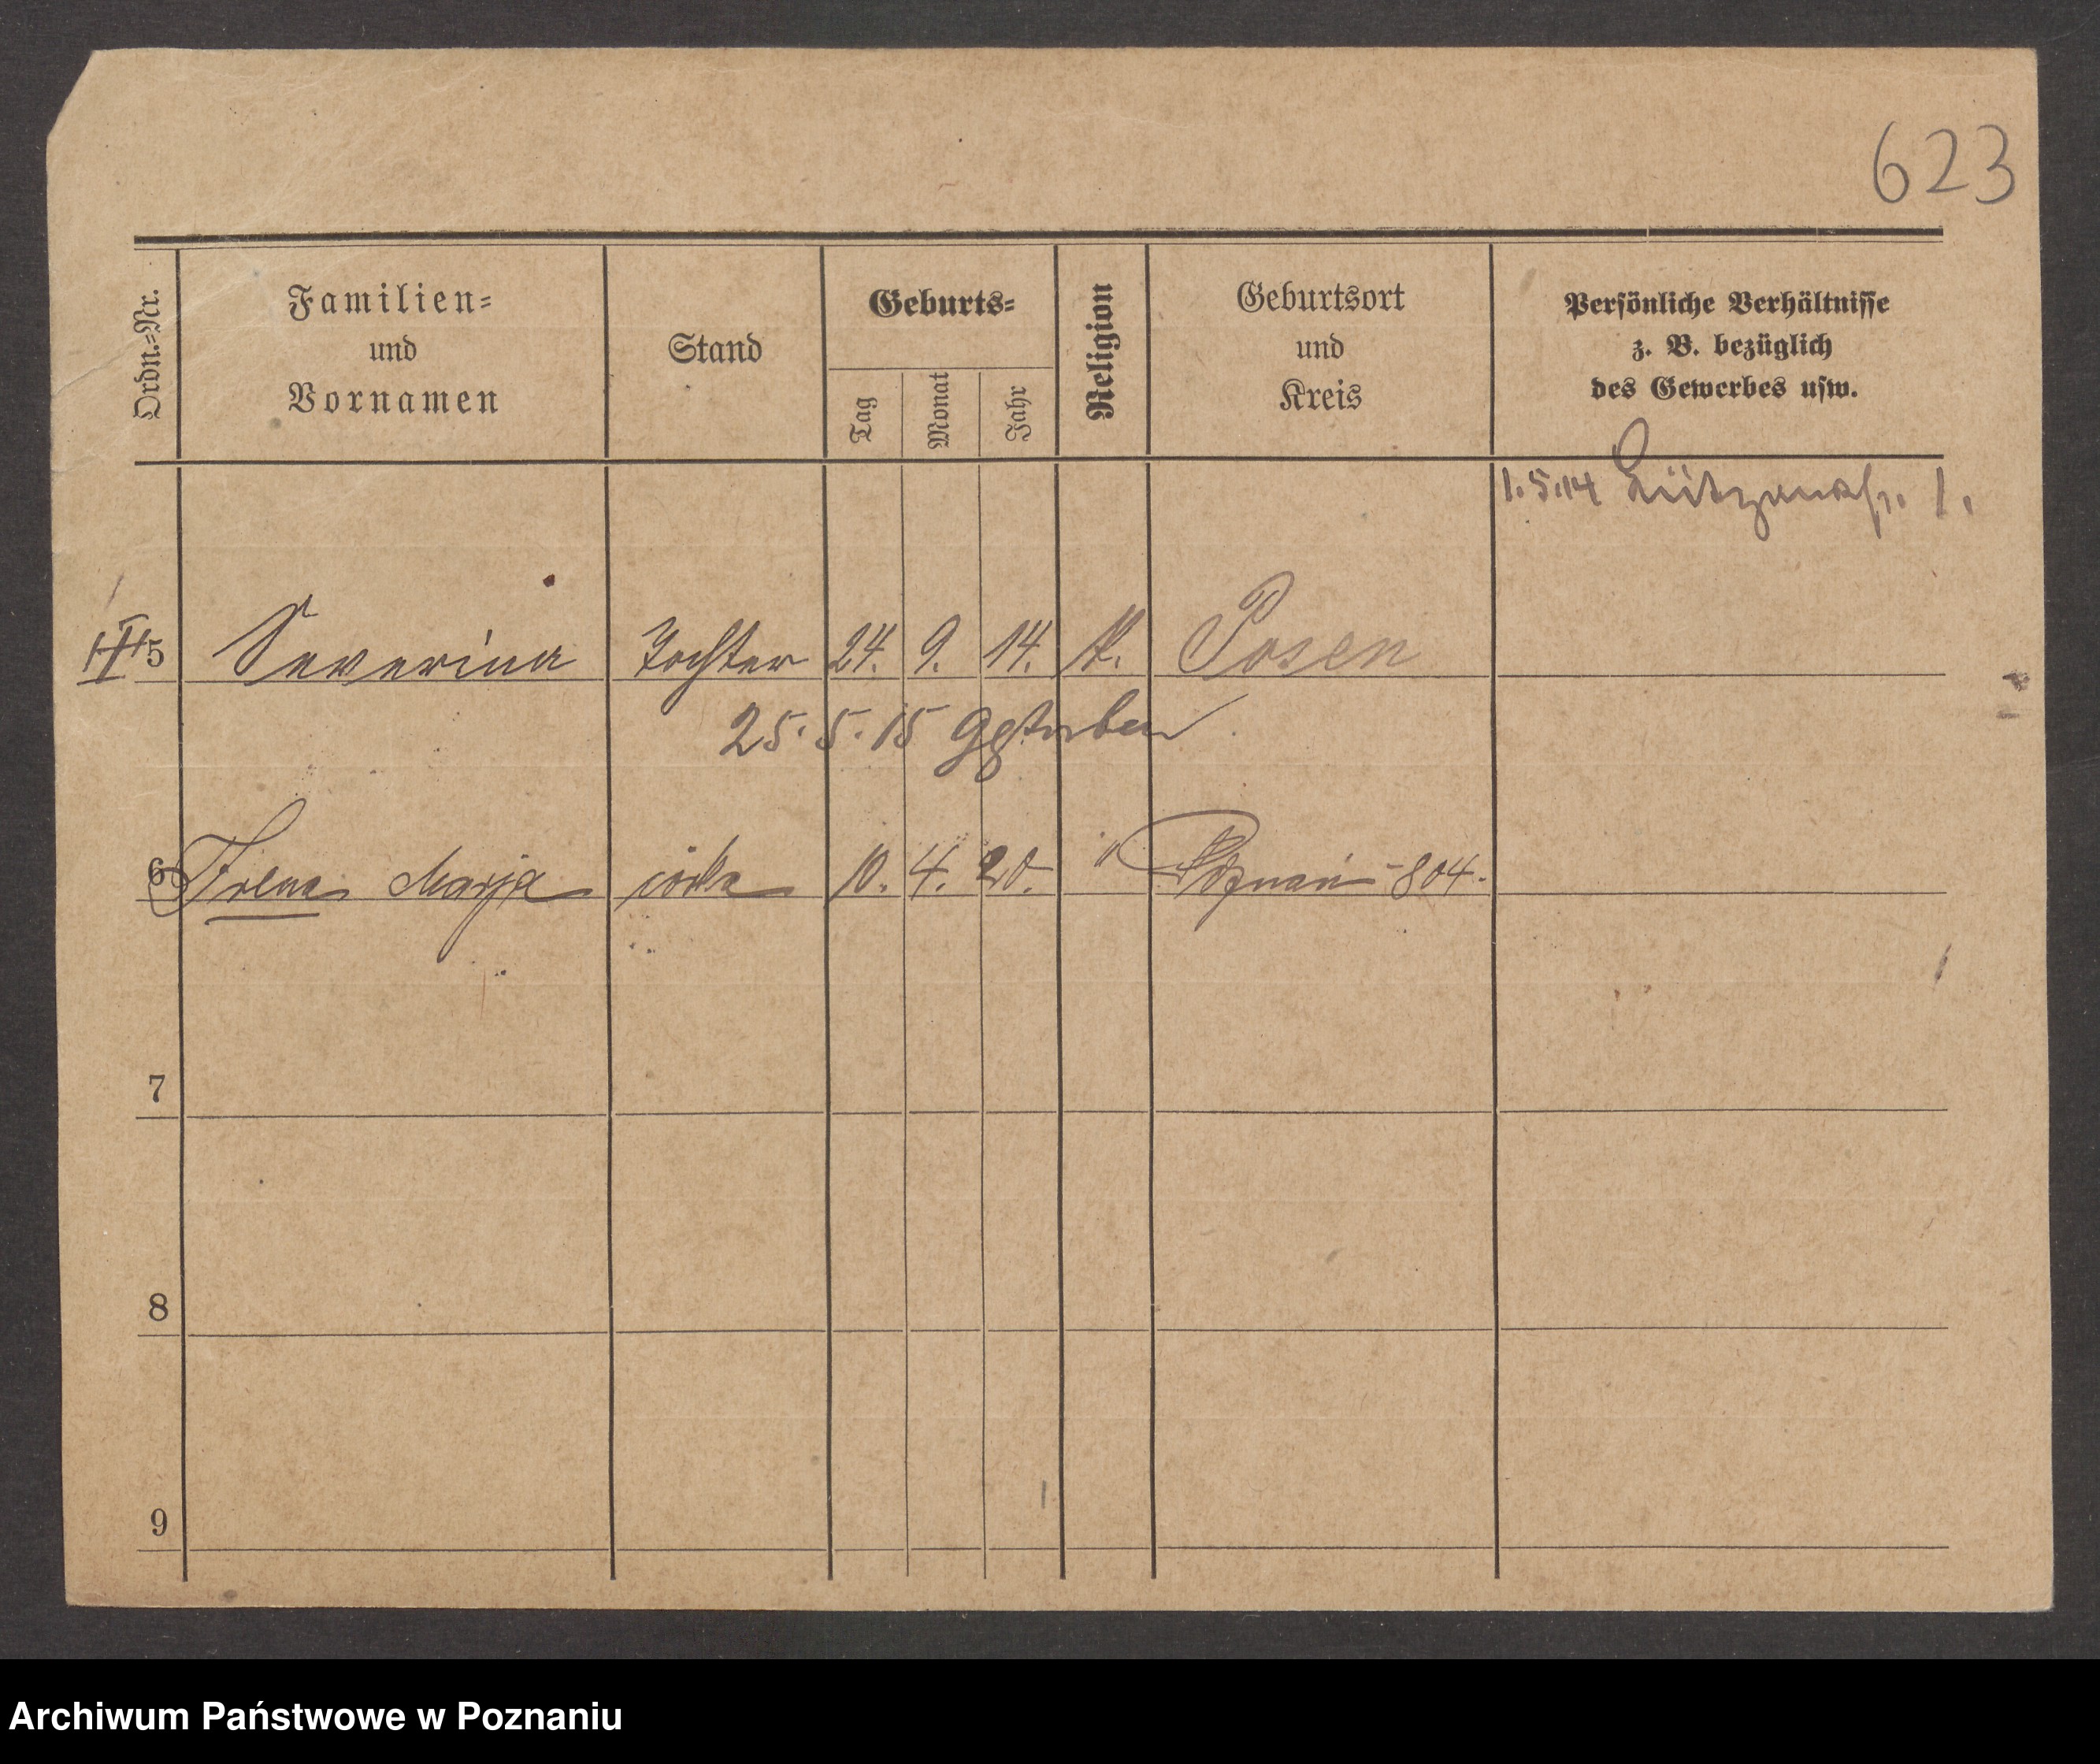 623
Ordn.=Nr.
Familien=
und
Vornamen
Stand
Geburts=
Tag
Monat
Jahr
Religion
Geburtsort
und
Kreis
Persönliche Verhältnisse
z. B. bezüglich
des Gewerbes usw.
1.5.14 Lützowstr. 1.
5 Severina Tochter 24. 9. 14. K. Posen
25. 5. 15 gestorben
6 Irena Marja córka 10. 4. 20. " Poznań - 804.
7
8
9
Archiwum Państwowe w Poznaniu